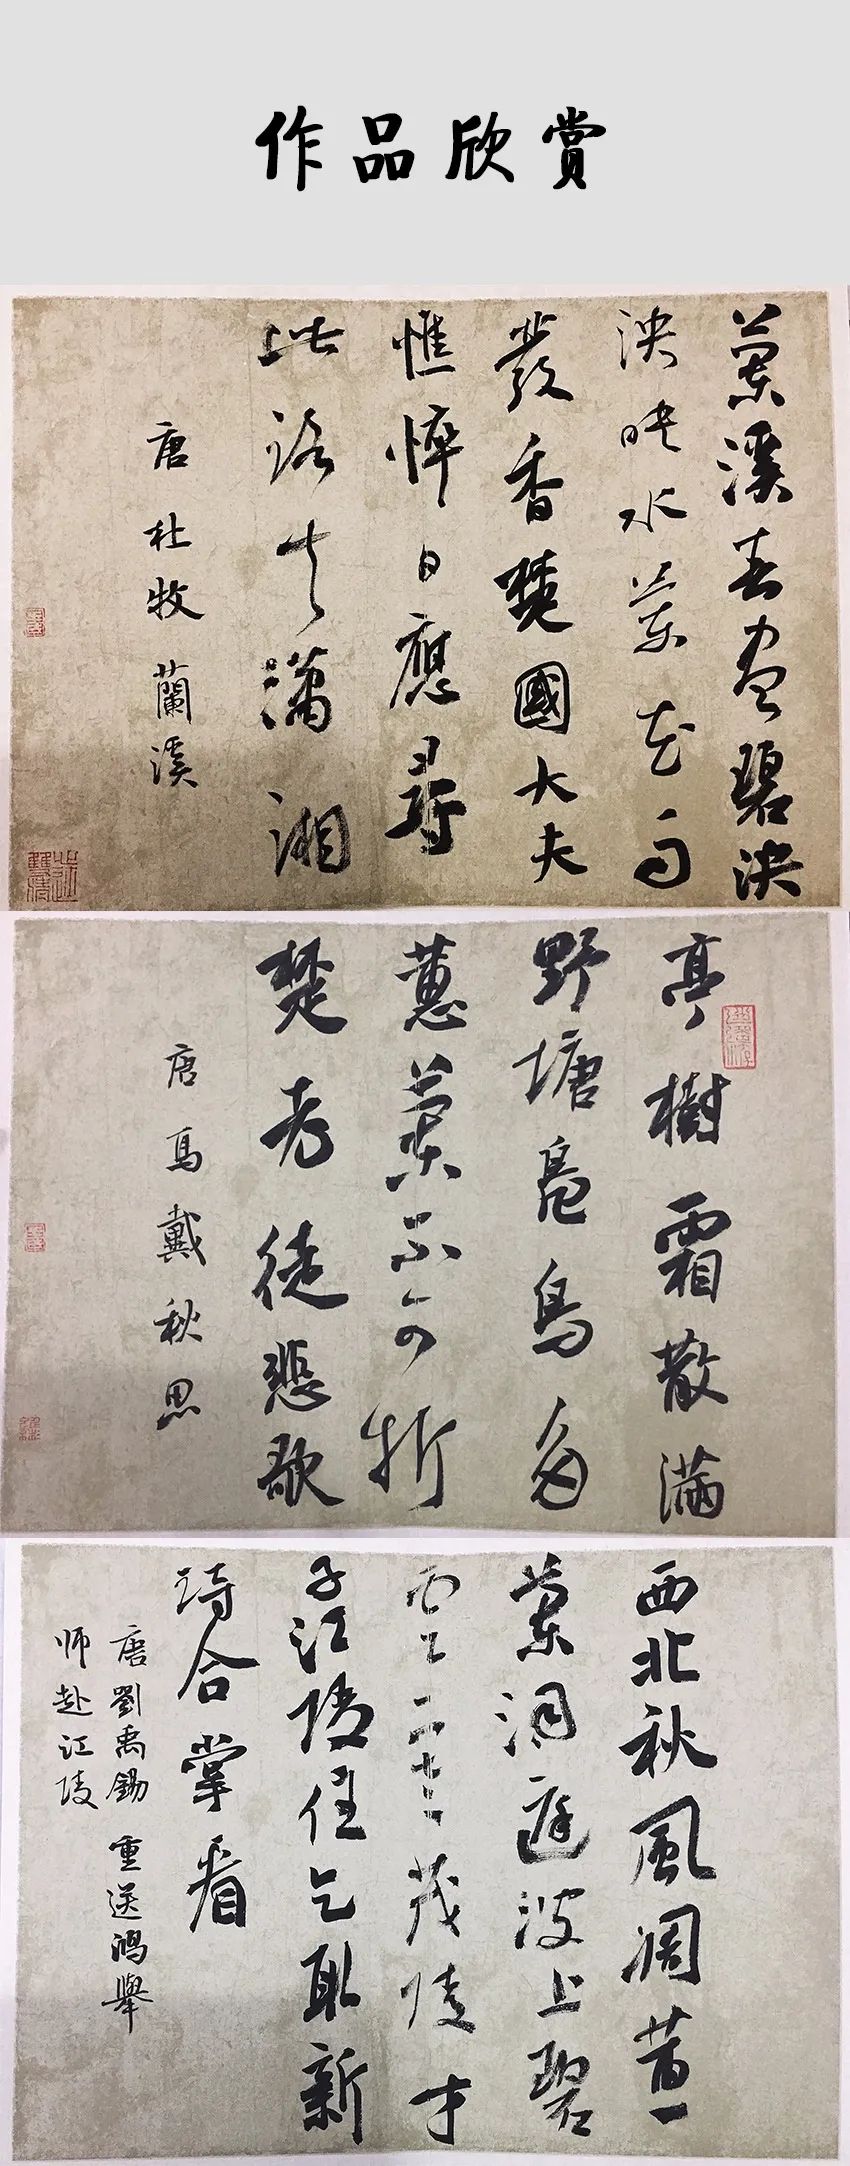 作品欣賞
蘭溪春盡碧泱
泱映水蘭花雨
發香楚國大夫
憔悴日應尋
此路去瀟湘
唐 杜牧 蘭溪
亭樹霜散滿
野塘鳧鳥多
蕙蘭不可折
楚老徒悲歌
唐馬戴秋思
西北秋風凋蕙
蘭洞庭波上碧
雲寒茂陵才
子江陵住乞取新
詩合掌看
唐劉禹錫 重送鴻舉
师赴江陵